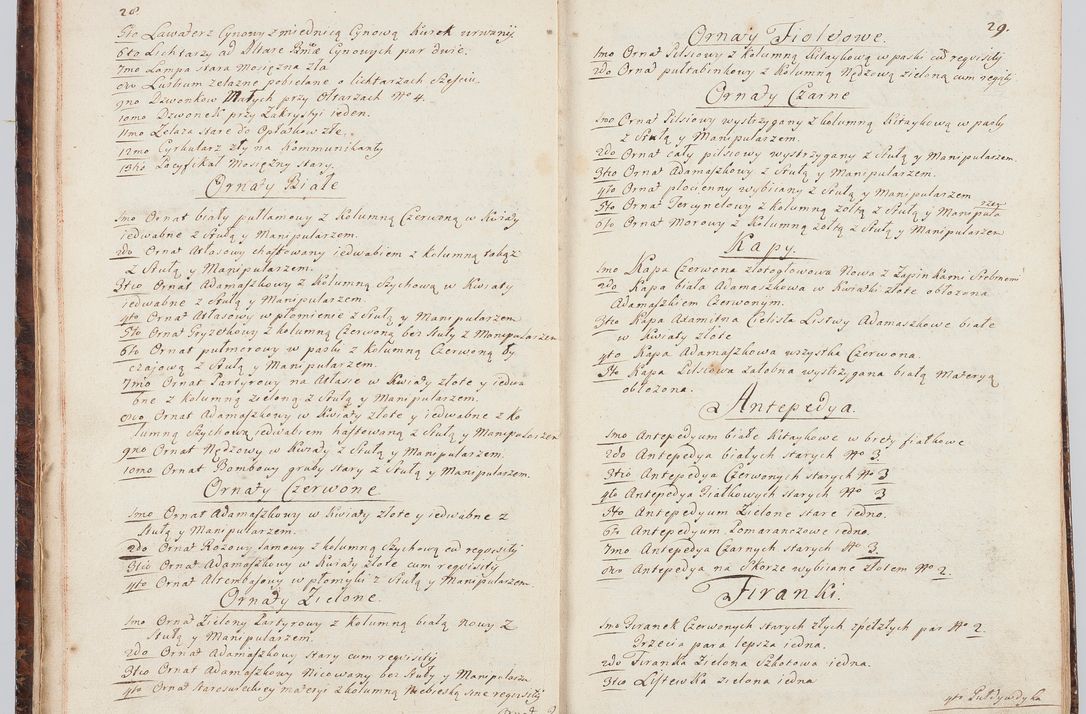 28.
5to Lawaterz Cynowy z miednicą Cynową Kurek urwany
6to Lichtarzy ad Altare Cynowych par dwie.
7mo Lampa stara Mosiężna zła
8vo Lustrum żelazne pobielane o lichtarzach Sześciu.
9no Dzwonkow Małych przy Ołtarzach No 4.
10mo Dzwonek przy Zakrystyi ieden.
11mo Żelaza Stare do Opłatkow złe.
12mo Cyrkularz zły na Kommunikanty
13tio Pacyfikał Mosiężny Stary.
Ornaty Białe
1mo Ornat biały pułlamowy z Kolumną Czerwoną w Kwiaty
iedwabne z Stułą y Manipularzem.
2do Ornat Atlasowy haftowany iedwabiem z Kolumną
z Stułą y Manipularzem.
3tio Ornat Adamaszkowy z Kolumną Szychową w Kwiaty
iedwabne z Stułą y Manipularzem
4to Ornat Atlasowy w płomienie z Stułą y Manipularzem
5to Ornat Gryzetkowy z Kolumną Czerwoną bez Stuły z Manipularzem
6to Ornat pułmorowy w paski z Kolumną Czerwoną
czaiową z Stułą y Manipularzem.
7mo Ornat Partyrowy na Atlasie w Kwiaty złote y iedwa
bne z Kolumną zieloną z Stułą y Manipularzem.
8vo Ornat Adamaszkowy w Kwiaty złote y iedwabne z Ko
lumną Szychową iedwabiem haftowaną z Stułą y Manipularzem
9no Ornat Nędzowy w Kwiaty z Stułą y Manipularzem.
10mo Ornat Bombowy gruby stary z Stułą y Manipularzem.
Ornaty Czerwone
1mo Ornat Adamaszkowy w Kwiaty złote y iedwabne z
Stułą y Manipularzem.
2do Ornat Rożowy lamowy z Kolumną Szychową cu requisity
3tio Ornat Adamaszkowy w Kwiaty złote cum requisity
4to Ornat Altembasowy w płomyki z Stułą y Manipularzem
Ornaty Zielone.
1mo Ornat Zielony Partyrowy z Kolumną białą Nowy z
Stułą y Manipularzem.
2do Ornat Adamaszkowy Stary cum requisity
3tio Ornat Adamaszkowy Nicowany bez Stuły y Manipularza
4to Ornat Staroswieckiey materyi z Kolumną Niebieską sine requisity
29.
Ornaty Fiolkowe.
1mo Ornat Pilsiowy z Kolumną Kitaykową w paski cu requisity
2do Ornat pułtabinkowy z Kolumną Nędzową zieloną cum requis
Ornaty Czarne
1mo Ornat Pilsiowy wystrzygany z Kolumną Kitaykową w paski
z Stułą y Manipularzem.
2do Ornat cały pilsiowy wystrzygany z Stułą y Manipularzem.
3tio Ornat Adamaszkowy z Stułą y Manipularzem.
4to Ornat płocienny wybiiany z Stułą y Manipularzem
5to Ornat Tercynelowy z Kolumną żołtą z Stułą y Manipula
rzem
6to Ornat Morowy z Kolumną żołtą z Stułą y Manipularzem
Kapy.
1mo Kapa Czerwona złotogłowowa Nowa z Zapinkami Srebnemi
2do Kapa biała Adamaszkowa w Kwiatki złote obłożona
Adamaszkiem Czerwonym.
3tio Kapa Axamitna Cielista Listwy Adamaszkowe białe
w Kwiaty złote
4to Kapa Adamaszkowa wszystka Czerwona.
5to Kapa Pilsiowa żałobna wystrzygana białą Materyą
obłożona.
Antepedya.
1mo Antepedyum białe Kitaykowe w brety fiałkowe
2do Antepedya białych starych No 3.
3tio Antepedya Czerwonych starych No 3
4to Antepedya Fiałkowych starych No 3
5to Antepedyum Zielone stare iedno.
6to Antepedyum Pomaranczowe iedno.
7mo Antepedya Czarnych starych No 3.
8vo Antepedya na Skorze wybiiane złotem No 2.
Firanki.
1mo Firanek Czerwonych starych złych zpełzłych par No 2.
Trzecia para lepsza iedna.
2do Firanka Zielona Szkotowa iedna.
3tio Listewka zielona iedna
4to